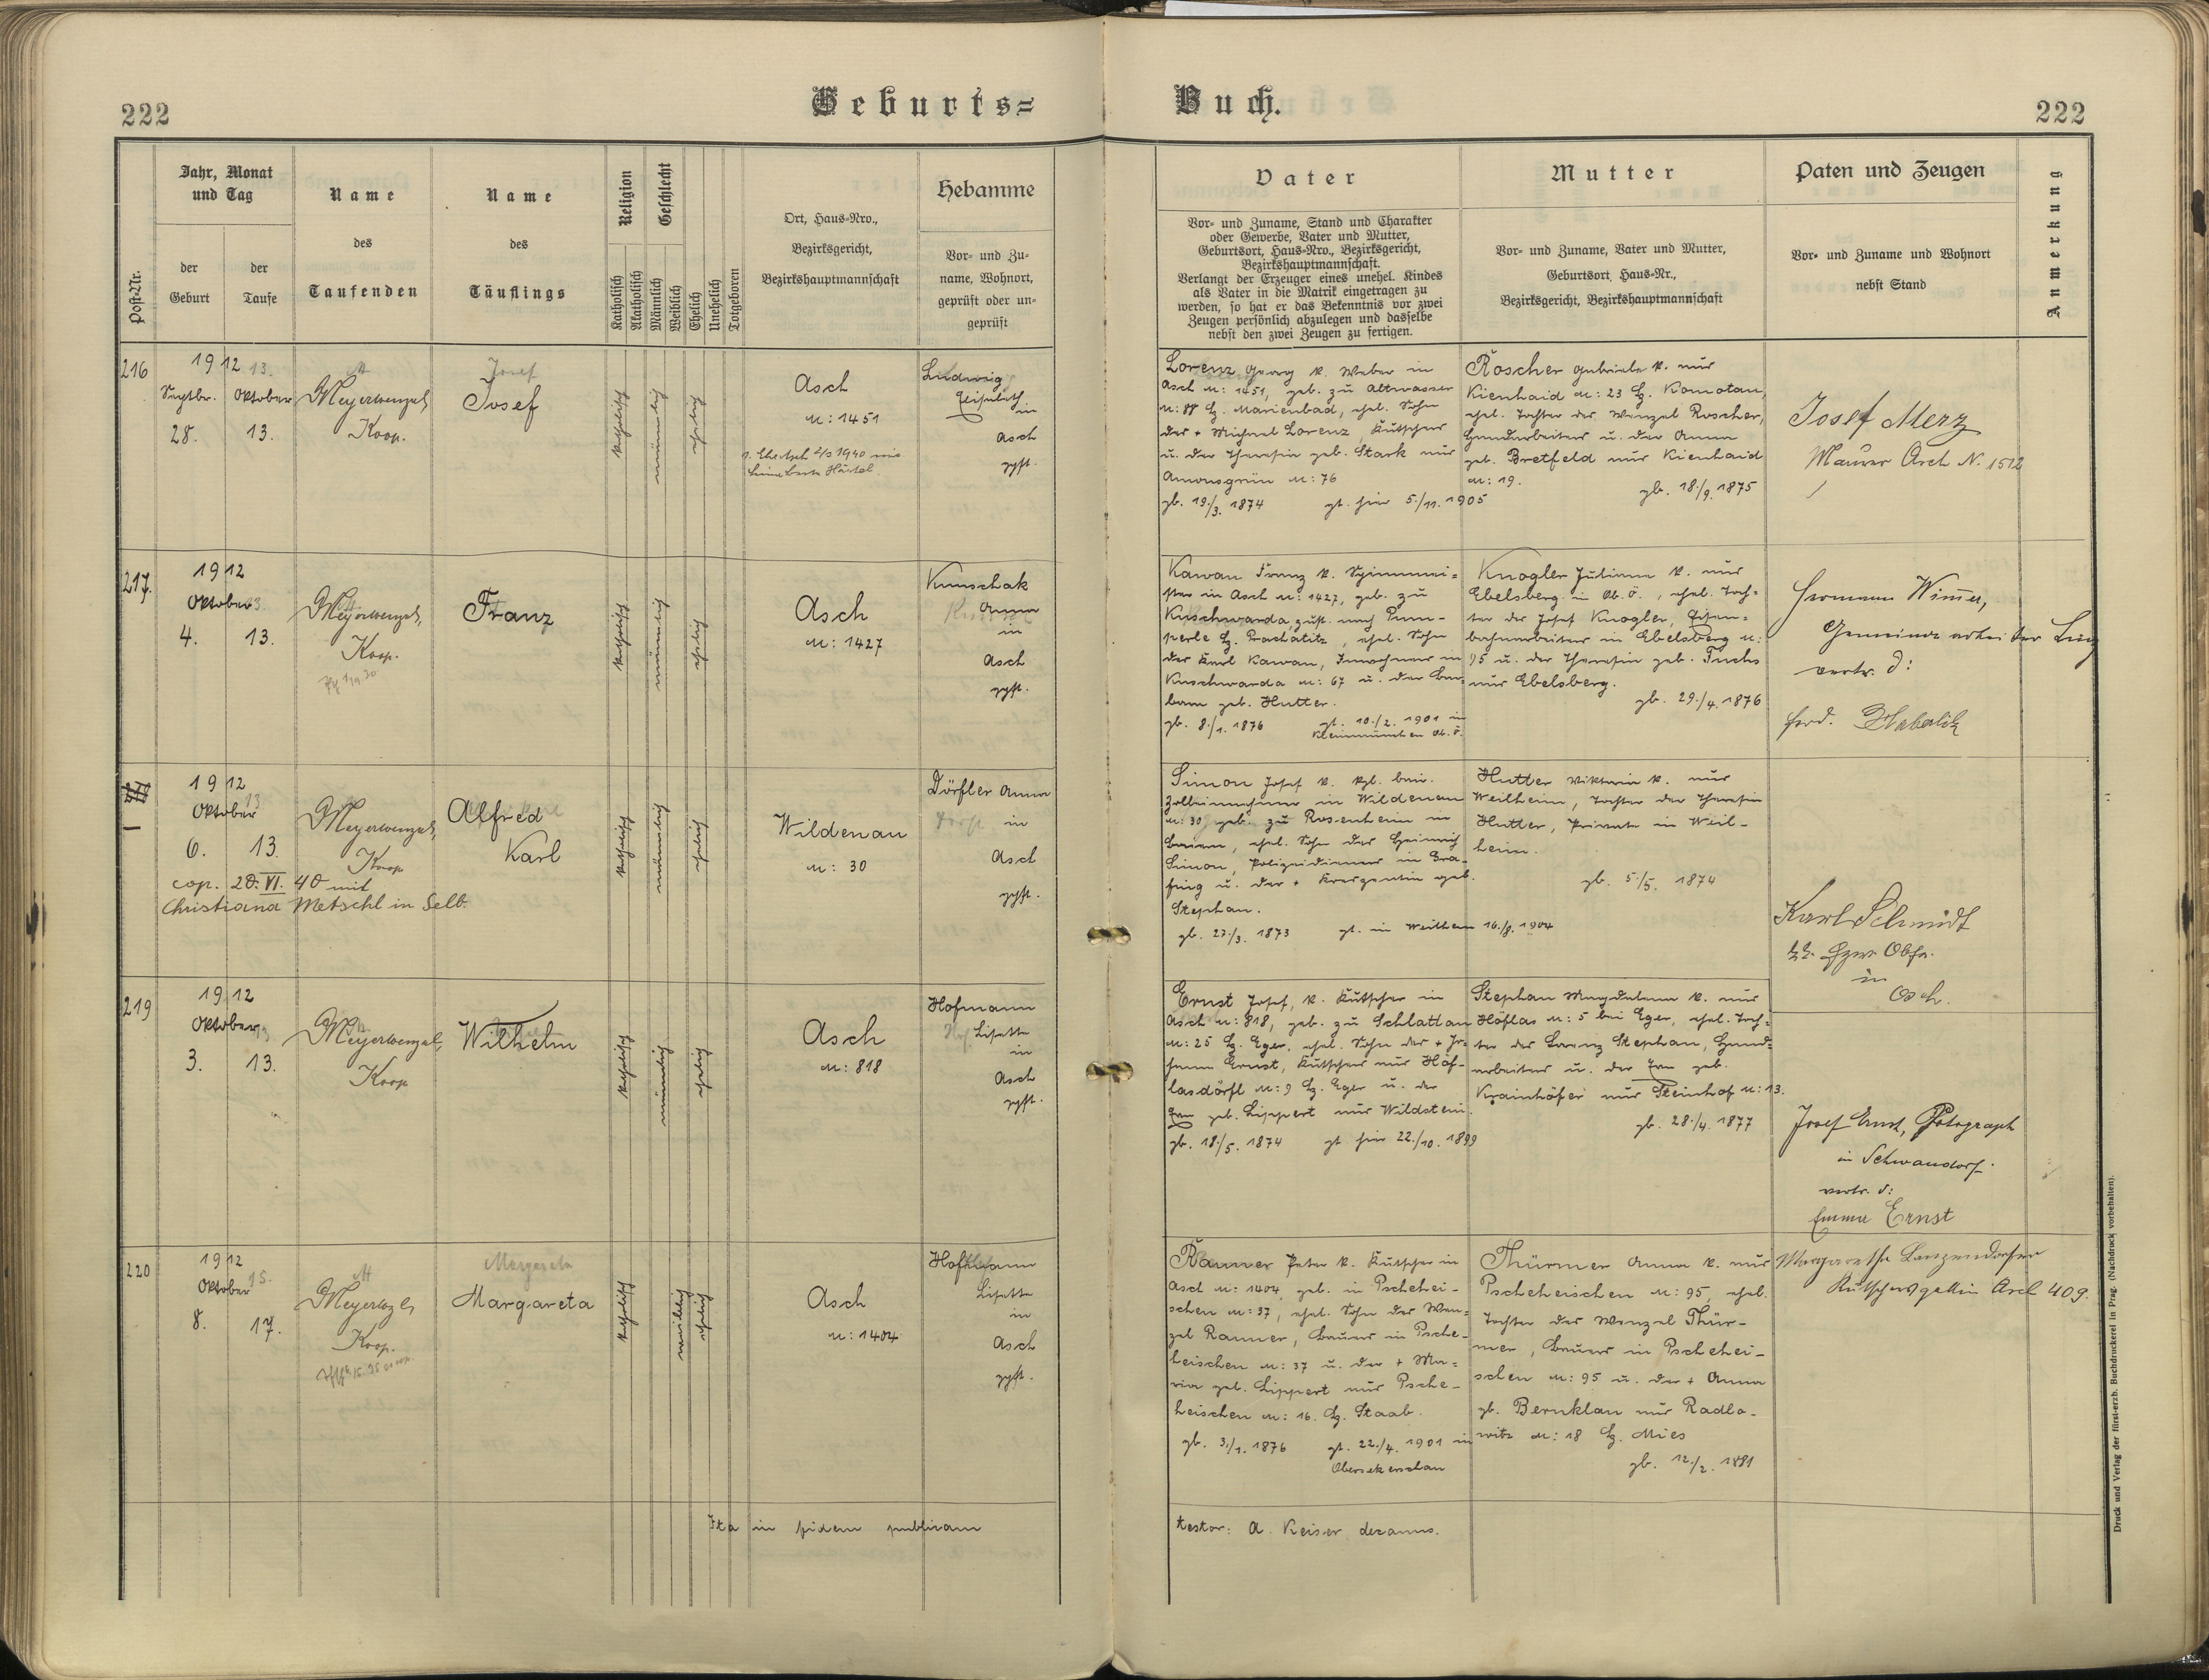 222
Geburts=
Buch.
222
Post-Nr.
Jahr, Monat
und Tag
der
Geburt
der
Taufe
Name
des
Taufenden
Name
des
Täuflings
Religion
Katholisch
Akatholisch
Geschlecht
Männlich
Weiblich
Ehelich
Unehelich
Totgeboren
Ort, Haus-Nro.,
Bezirksgericht,
Bezirkshauptmannschaft
Hebamme
Vor- und Zu-
name, Wohnort,
geprüft oder un-
geprüft
Vater
Vor- und Zuname, Stand und Charakter
oder Gewerbe, Vater und Mutter,
Geburtsort, Haus-Nro., Bezirksgericht,
Bezirkshauptmannschaft.
Verlangt der Erzeuger eines unehel. Kindes
als Vater in die Matrik eingetragen zu
werden, so hat er das Bekenntnis vor zwei
Zeugen persönlich abzulegen und dasselbe
nebst den zwei Zeugen zu fertigen.
Mutter
Vor- und Zuname, Vater und Mutter,
Geburtsort, Haus-Nr.,
Bezirksgericht, Bezirkshauptmannschaft
Paten und Zeugen
Vor- und Zuname und Wohnort
nebst Stand
Anmerkung
216
1912
Septbr. Oktober
28. 13.
Meyerwenzel,
Koop.
Josef
Josef
katholisch
männlich
ehelich
Asch
N: 1451
Ludwig
Elisabeth
in
Asch
gpft.
Lorenz Georg k. Weber in
Asch N: 1451, geb. zu Altwasser
N: 88 Bz. Marienbad, ehel. Sohn
des + Michael Lorenz, Kutscher
u. der Theresia geb. Stark aus
Amonsgrün N: 76
gb. 19./3. 1874 gt. hier 5./11. 1905
Roscher Gabriele k. aus
Kienhaid N: 23 Bz. Komotau,
ehel. Tochter des Wenzel Roscher,
Handarbeiters u. der Anna
geb. Bretfeld aus Kienhaid
N: 19.
gb. 18./9. 1875
Josef Merz
Maurer Asch N. 1512
217.
1912
Oktober
4. 13.
Meyerwenzel,
Koop.
Franz
katholisch
männlich
ehelich
Asch
N: 1427
Kunschak
Anna
in
Asch
gpft.
Kawan Franz k. Spinnmei=
ster in Asch N: 1427, geb. zu
Kuschwarda, zust. nach Pum-
perle Bz. Prachatitz, ehel. Sohn
des Karl Kawan, Inwohners in
Kuschwarda N: 67 u. der Bar-
bara geb. Hutter.
gb. 8./1. 1876 gt. 10./2. 1901 in
Kleinmünchen Ob. Ö.
Knogler Juliana k. aus
Ebelsberg in Ob. Ö., ehel. Toch=
ter des Josef Knogler, Eisen=
bahnarbeiters in Ebelsberg N:
95 u. der Theresia geb. Fuchs
aus Ebelsberg.
gb. 29./4. 1876
Hermann Wimmer,
Gemeindearbeiter Linz
vertr. d:
Ferd.
1912
Oktober
6. 13.
cop. 20. VI. 40 mit
Christiana Metschl in Selb.
Meyerwenzel,
Koop
Alfred
Karl
katholisch
männlich
ehelich
Wildenau
N: 30
Dörfler Anna
in
Asch
gpft.
Simon Josef k. kgl. bair.
Zolleinnehmer in Wildenau
N: 30, geb. zu Rosenheim in
Baiern, ehel. Sohn des Heinrich
Simon, Polizeidieners in Gra-
fing u. der + Kreszentia geb.
Stephan.
gb. 27./3. 1873 gt. in Weilheim 16./8. 1904
Hutter Viktoria k. aus
Weilheim, Tochter der Theresia
Hutter, Private in Weil-
heim.
gb. 5./5. 1874
Karl Schmidt
in
Asch.
219
1912
Oktober
3. 13.
Meyerwenzel,
Koop
Wilhelm
katholisch
männlich
ehelich
Asch
N: 818
Hofmann
Lisette
in
Asch
gpft.
Ernst Josef, k. Kutscher in
Asch N: 818, geb. zu Schlattan
N: 25 Bz. Eger, ehel. Sohn des + Jo=
hann Ernst, Kutschers aus Höf-
lasdörfl N: 9 Bz. Eger u. der
Eva geb. Lippert aus Wildstein.
gb. 18./5. 1874 gt hier 22./10. 1899
Stephan Magdalena k. aus
Höflas N: 5 bei Eger, ehel. Toch=
ter des Lorenz Stephan, Hand=
arbeiters u. der Eva geb.
Krainhöfer aus Steinhof N: 13.
gb. 28./4. 1877
Josef Ernst, Photograph
in Schwandorf.
vertr. d:
Emma Ernst
220
1912
Oktober
8. 17.
Meyerwzl,
Koop.
Margareta
Margareta
katholisch
weiblich
ehelich
Asch
N: 1404
Hofmann
Lisette
in
Asch
gpft.
Ranner Peter k. Kutscher in
Asch N: 1404, geb. in Pschehei-
schen N: 37, ehel. Sohn des Wen=
zel Ranner, Bauers in Psche-
heischen N: 37 u. der + Ma=
ria geb. Lippert aus Psche-
heischen N: 16. Bz. Staab.
gb. 3./1. 1876 gt. 22./4. 1901 in
Obersekerschan
Thürmer Anna k. aus
Pscheheischen N: 95, ehel.
Tochter des Wenzel Thür-
mer, Bauers in Pschehei-
schen N: 95 u. der + Anna
gb. Bernklau aus Radlo-
witz N: 18 Bz. Mies
gb. 12./2. 1881
Margarethe Langendorfer
Kutschersgattin Asch 409.
Ita in fidem publicam
testor: A. Keiser decanus.
Druck und Verlag der fürst-erzb. Buchdruckerei in Prag. (Nachdruck vorbehalten).